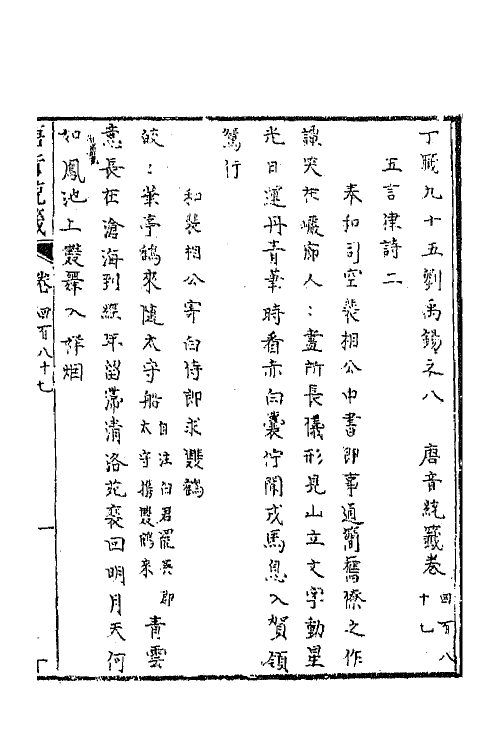 丁籤九十五劉禹錫之八　唐音統籤卷四百八十七
五言律詩二
奉和司空裴相公中書即事通簡舊僚之作
談笑在巖廊人〻盡所長儀形見山立文字動星
光日運丹青筆時看赤白囊佇聞戎馬息入賀領
鴛行
和裴相公寄白侍郎求雙鶴
皎〻華亭鶴來隨太守船自注白君罷吳郡太守携雙鶴來青雲
意長在滄海到經年留滯清洛苑裵回明月天何
如鳳池上雙舞入祥烟
唐音統籤　卷四百八十七　一　丁